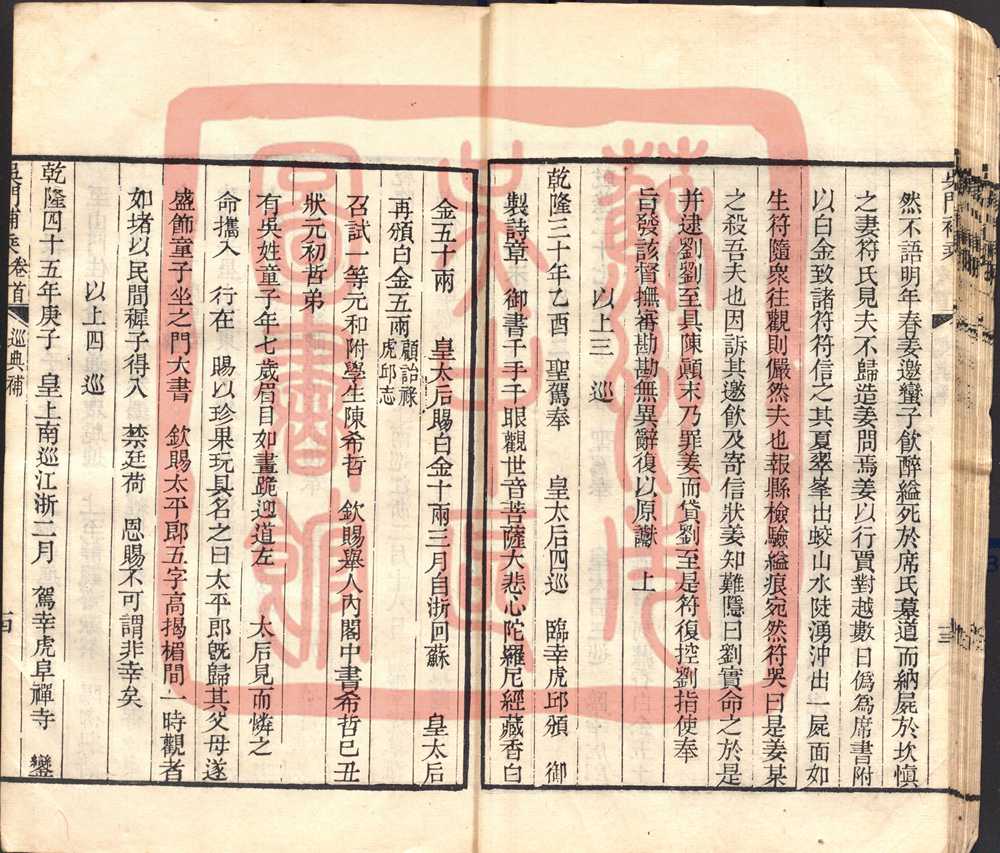 吳門補乘
然不語明年春姜邀蠻子飲醉縊死於席氏墓道而納屍於坎慎
之妻符氏見夫不歸造姜問焉姜以行賈對越數日偽爲席書附
以白金致諸符符信之其夏翠峯出蛟山水陡湧沖出一屍面如
生符隨衆往觀則儼然夫也報縣檢驗縊痕宛然符哭曰是姜某
之殺吾夫也因訴其邀飲及寄信狀姜知難隱曰劉實命之於是
并逮劉劉至具陳顚末乃罪姜而貸劉至是符復控劉指使奉
旨發該督撫審勘勘無異辭復以原讞　上
以上三　巡
乾隆三十年乙酉　聖駕奉　皇太后四巡　臨幸虎邱頒　御
製詩章　御書千手千眼觀世音菩薩大悲心陀羅尼經藏香白
金五十兩　皇太后賜白金十兩三月自浙回蘇　皇太后
再頒白金五兩 顧詒祿
虎邱志
召試一等元和附學生陳希哲　欽賜舉人內閣中書希哲已丑
狀元初哲弟
有吳姓童子年七歲眉目如畫跪迎道左　太后見而憐之
命攜入　行在　賜以珍果玩具名之曰太平郎旣歸其父母遂
盛飾童子坐之門大書　欽賜太平郎五字高揭楣間一時觀者
如堵以民間穉子得入　禁廷荷　恩賜不可謂非幸矣
以上四　巡
乾隆四十五年庚子　皇上南巡江浙二月　駕幸虎阜禪寺　鑾
吳門補乘 卷首　巡典補